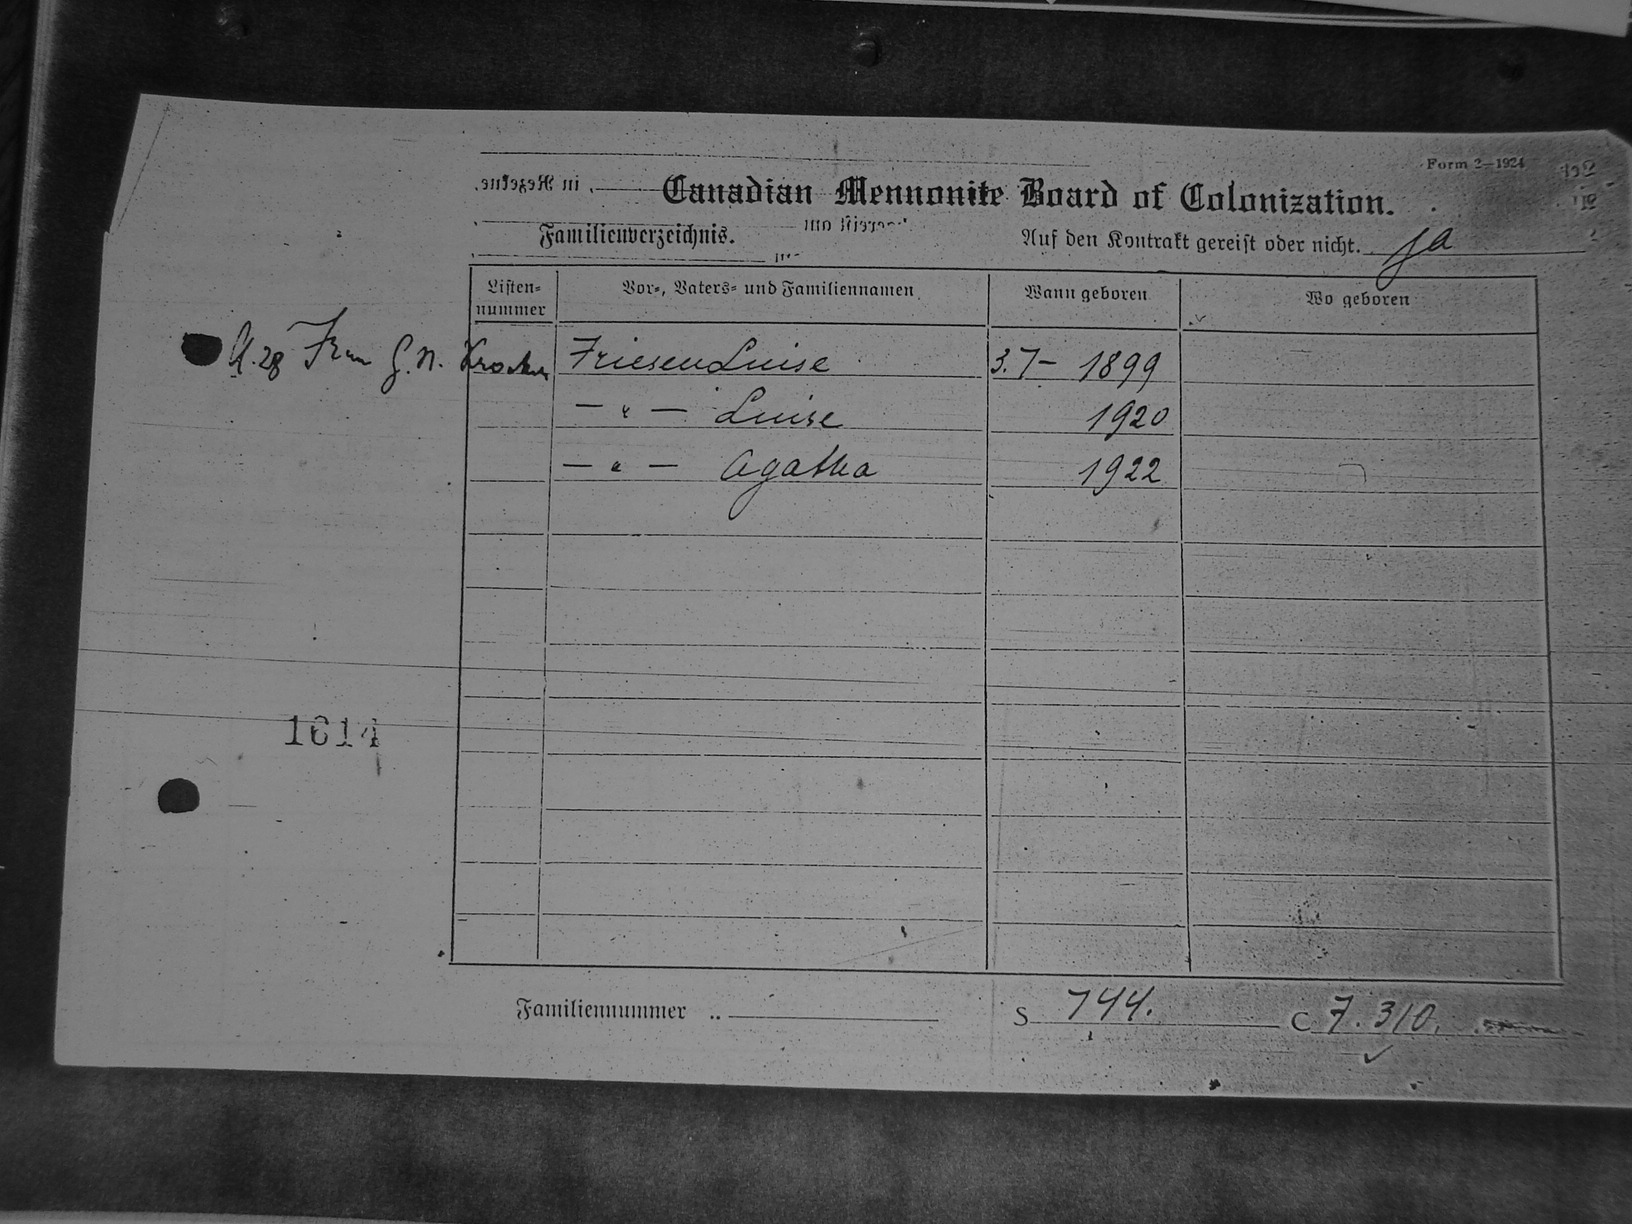 Form 2—1924
Canadian Mennonite Board of Colonization.
Familienverzeichnis. Auf den Kontrakt gereist oder nicht. ja
Listen-nummer Vor-, Vaters- und Familiennamen Wann geboren Wo geboren
28 Frau G. N. Friesen Luise 3.7– 1899
— " — Luise 1920
— " — Agatha 1922
1614
Familiennummer .. S 744. C 7.310.